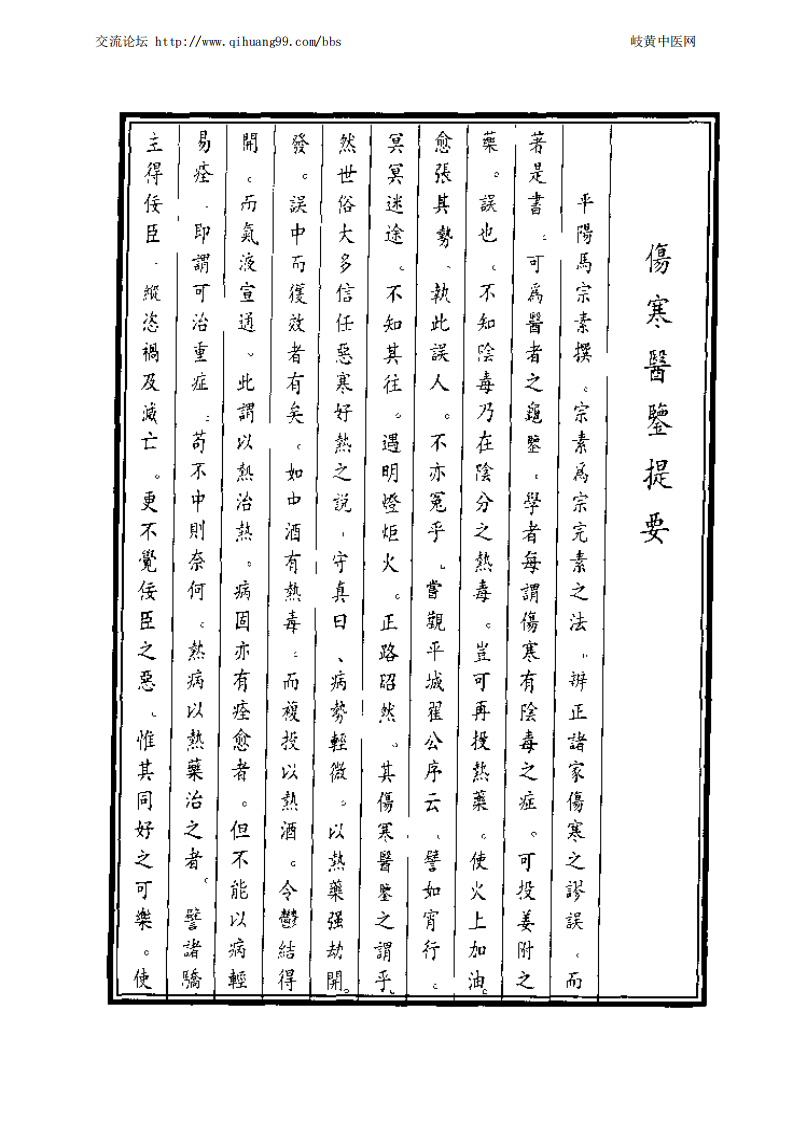 交流论坛 http://www.qihuang99.com/bbs
岐黄中医网
傷寒醫鑒提要
平陽馬宗素撰。宗素為宗完素之法。辨正諸家傷寒之謬誤、而
著是書。可為醫者之龜鑒。學者每謂傷寒有陰毒之症。可投姜附之
藥。誤也。不知陰毒乃在陰分之熱毒。豈可再投熱藥。使火上加油。
愈張其勢、執此誤人。不亦冤乎。嘗觀平城翟公序云、譬如宵行。
冥冥迷途。不知其往。遇明燈炬火。正路昭然。其傷寒醫鑒之謂乎。
然世俗大多信任惡寒好熱之說、守真曰、病勢輕微。以熱藥強劫開。
發。誤中而獲效者有矣、如中酒有熱毒。而複投以熱酒。令鬱結得
開。而氣液宣通。此謂以熱治熱。病固亦有痊愈者。但不能以病輕
易痊、即謂可治重症。苟不中則奈何。熱病以熱藥治之者。譬諸驕
主得佞臣、縱恣禍及滅亡。更不覺佞臣之惡、惟其同好之可樂。使